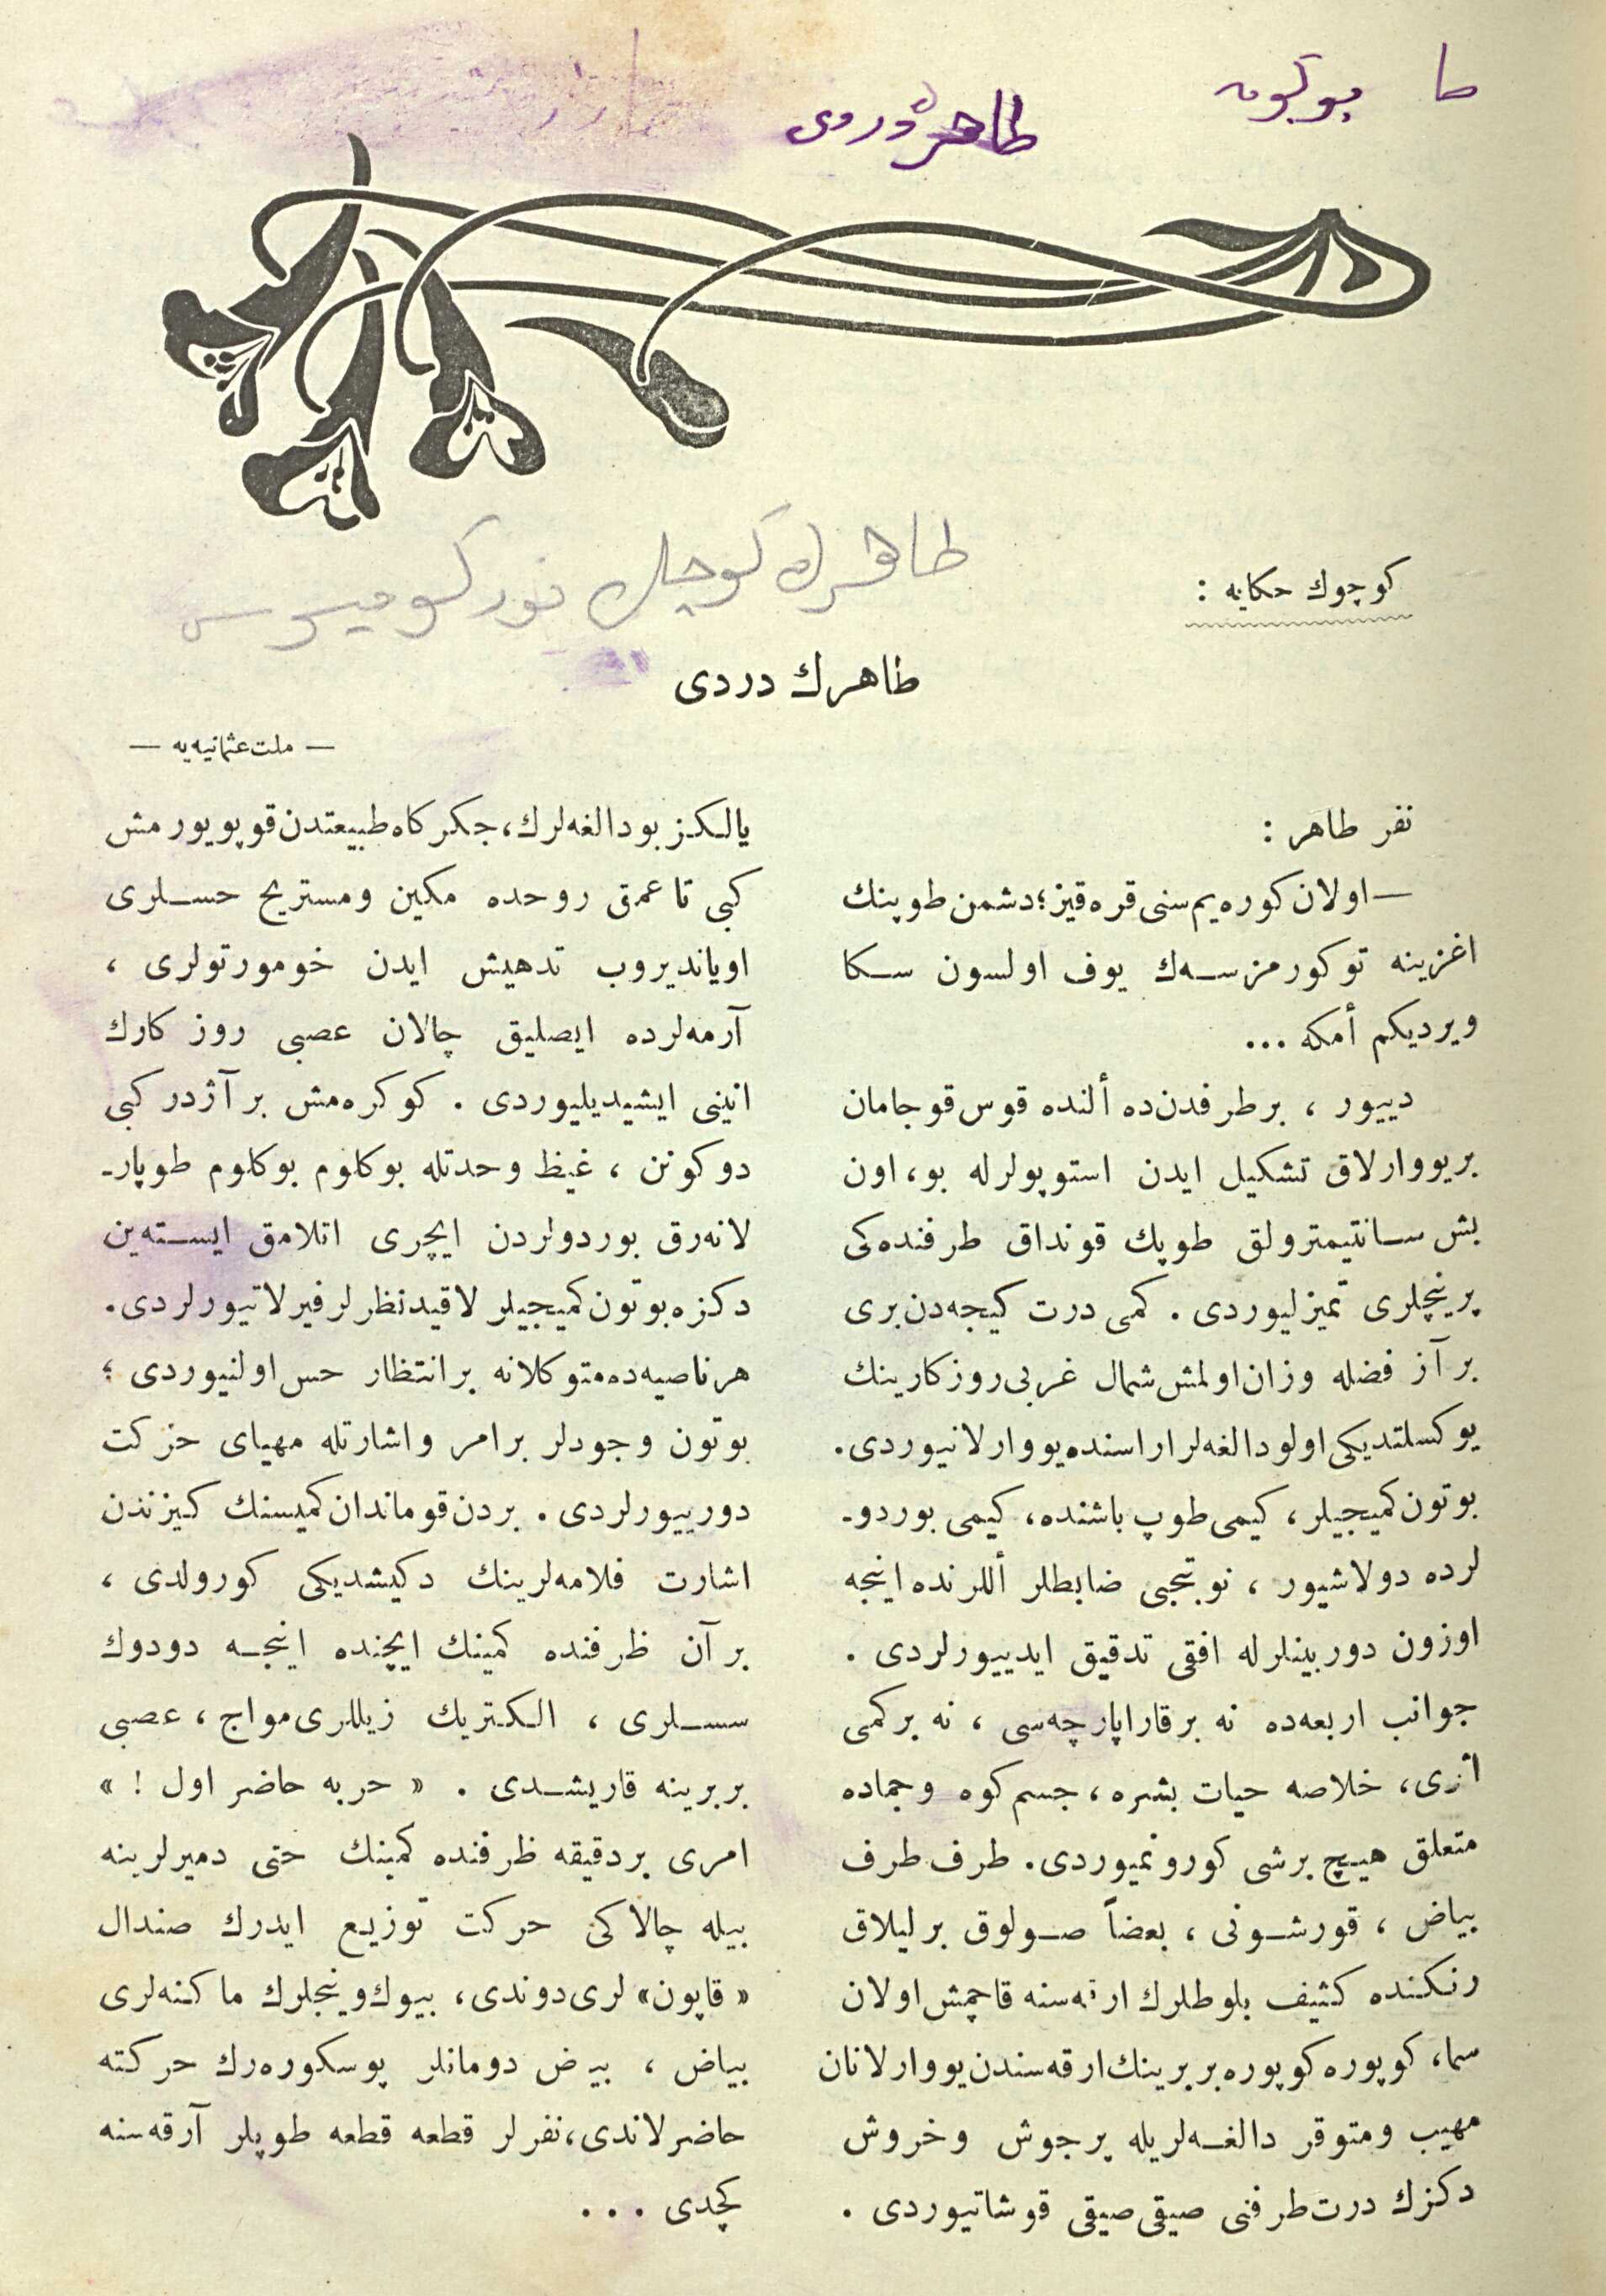 طا بوكون
طاهرڭ دردى
كوچوك حكایه :
طاهرك دردی
— ملت عثمانیه‌یه —
نفر طاهر :
— اولان كوره‌یم سنی قره‌قیز؛ دشمن طوپنك
اغزینه توكورمزسه‌ك یوف اولسون سكا
ویردیكم أمكه ...
دییور ، برطرفدن‌ده ألنده قوس قوجامان
بریووارلاق تشكیل ایدن استوپولرله بو، اون
بش سانتیمترولق طوپك قونداق طرفنده‌كی
پرینچلری تمیزلیوردی . كمی درت كیجه‌دن‌بری
بر آز فضله وزان‌اولمش شمال غربی روزكارینك
یوكسلتدیكی اولو دالغه‌لر اراسنده یووارلانیوردی.
بوتون كمیجیلر، كیمی طوپ باشنده، كیمی بوردو-
لرده دولاشیور ، نوبتجی ضابطلر أللرنده اینجه
اوزون دوربینلرله افقی تدقیق ایدییورلردی .
جوانب اربعه‌ده نه برقاراپارچه‌سی ، نه بركمی
اثری، خلاصه حیات بشره ، جسم كوه وجماده
متعلق هیچ برشی كورونمیوردی. طرف طرف
بیاض ، قورشونی ، بعضاً صولوق برلیلاق
رنكنده كثیف بلوطلرك ارقه‌سنه قاچمش اولان
سما، كوپوره كوپوره بربرینك‌ارقه‌سندن‌یووارلانان
مهیب ومتوقر دالغه‌لریله پرجوش وخروش
دكزك درت‌طرفنی صیقی‌صیقی قوشاتیوردی .
یالكز بودالغه‌لرك، جكركاه طبیعتدن قوپویورمش
كبی تا عمق روحده مكین ومستریح حسلری
اویاندیروب تدهیش ایدن خومورتولری ،
آرمه‌لرده ایصلیق چالان عصبی روزكارك
انینی ایشیدیلیوردی . كوكره‌مش بر آژدر كبی
دوكونن ، غیظ وحدتله بوكلوم بوكلوم طوپار-
لانه‌رق بوردولردن ایچری اتلامق ایسته‌ین
دكزه بوتون كمیجیلر لاقید نظرلر فیرلاتیورلردی.
هرناصیه‌ده متوكلانه برانتظار حس اولنیوردی ؛
بوتون وجودلر برامر واشارتله مهیای حركت
دورییورلردی . بردن قوماندان كمیسنك كیزندن
اشارت فلامه‌لرینك دكیشدیكی كورولدی ،
بر آن ظرفنده كمینك ایچنده اینجه دودوك
سسلری ، الكتریك زیللری مواج ، عصبی
بربرینه قاریشدی . « حربه حاضر اول ! »
امری بردقیقه ظرفنده كمینك حتی دمیرلرینه
بیله چالاكی حركت توزیع ایدرك صندال
« قاپون» لری دوندی، بیوك وینجلرك ماكنه‌لری
بیاض ، بیاض دومانلر پوسكوره‌رك حركته
حاضرلاندی، نفرلر قطعه قطعه طوپلر آرقه‌سنه
كچدی . . .